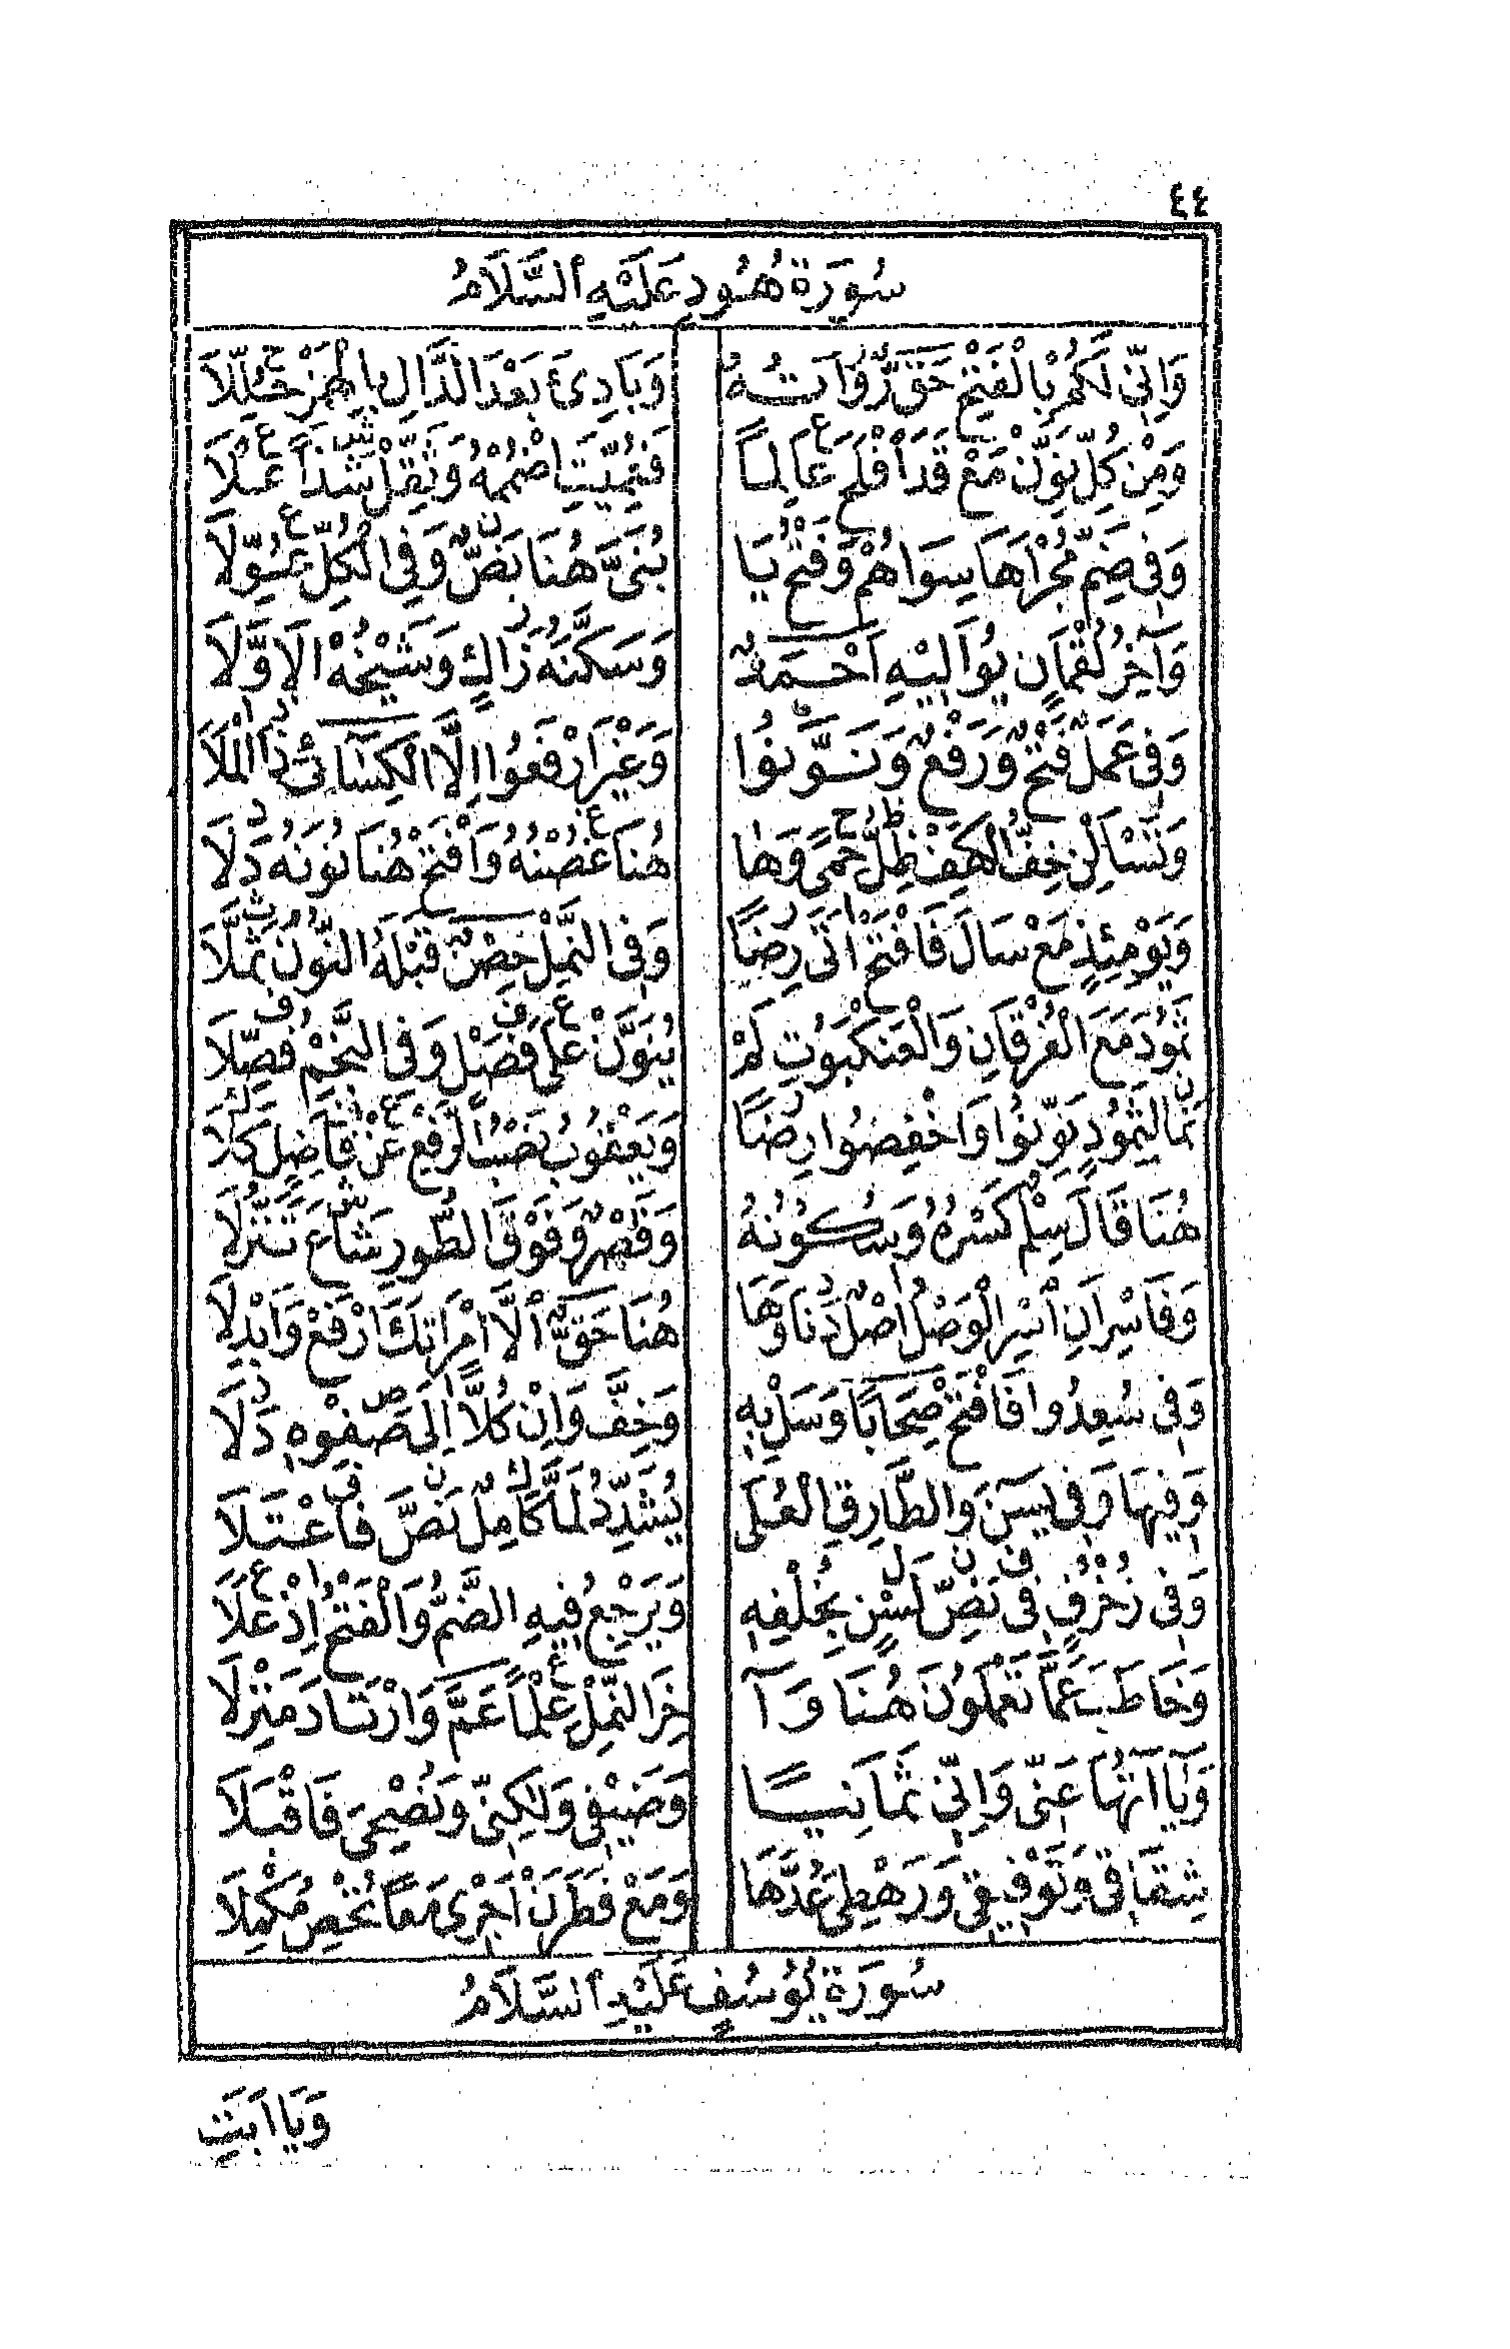 ٤٤
سُورَة هُودٍ عَلَيْهِ ٱلسَّلَامُ
وَإِنِّى لَكُمْ بِالْفَتْحِ حَقُّ رُوَاتِهُ وَبَادِىَٔ بَعْدَ الدَّالِ بِالْهَمْزِ حُلِّلَا
وَمِنْ كُلِّ نَوِّنْ مَعْ قَدَ أَفْلَحَ عَالِمًا فَعُمِّيَتِ اضْمُمْهُ وَثَقِّلْ شَذًا عَلَا
وَفِى ضَمِّ مُجْرَاهَا سِوَاهُمْ وَفَتْحُ يَا بُنَىَّ هُنَا نَصٌّ وَفِى الْكُلِّ عُوِّلَا
وَآخِرُ لُقْمَانٍ يُوَالِيْهِ أَحْمَدٌ وَسَكَّنَهُ زَاكٍ وَشَيْخُهُ الْاَوَّلَا
وَفِى عَمَلٌ فَتْحٌ وَرَفْعٌ وَنَوِّنُوا وَغَيْرَ ارْفَعُوا إِلَّا الْكِسَائِىَّ ذَا الْمَلَا
وَتَسْأَلْنِ خِفُّ الْكَهْفِ ظِلُّ حِمًى وَهَا هُنَا غُصْنُهُ وَافْتَحْ هُنَا نُونَهُ دَلَا
وَيَوْمِئِذٍ مَعْ سَالَ فَافْتَحْ أَتَى رِضًا وَفِى النَّمْلِ حِصْنٌ قَبْلَهُ النُّونُ ثُمَّلَا
ثَمُودَ مَعَ الْفُرْقَانِ وَالْعَنْكَبُوتِ لَمْ يُنَوَّنْ عَلَى فَصْلٍ وَفِى النَّجْمِ فُصِّلَا
نَمَا لِثَمُودٍ نَوِّنُوا وَاخْفِضُوا رِضًا وَيَعْقُوبُ نَصْبُ الرَّفْعِ عَنْ فَاضِلٍ كَلَا
هُنَا قَالَ سِلْمٌ كَسْرُهُ وَسُكُونُهُ وَقَصْرٌ وَفَوْقَ الطُّورِ شَاعَ تَنَزُّلَا
وَفَاسْرِ أَنِ اسْرِ الْوَصْلُ أَصْلٌ دَنَا وَهَا هُنَا حَقٌّ ٱلَّا امْرَاَتَكَ ارْفَعْ وَاَبْدِلَا
وَفِى سُعِدُوا فَافْتَحْ صِحَابًا وَسَلْ بِهِ وَخِفُّ وَإِنْ كُلًّا إِلَى صَفْوِهِ دَلَا
وَفِيهَا وَفِى يٰسٓ وَالطَّارِقِ الْعُلَى يُشَدِّدُ لَمَّا كَامِلٌ نَصَّ فَاعْتَلَا
وَفِى زُخْرُفٍ فِى نَصِّ لُسْنٍ بِخُلْفِهِ وَيَرْجِعُ فِيهِ الضَّمُّ وَالْفَتْحُ إِذْ عَلَا
وَخَاطَبَ عَمَّا تَعْمَلُونَ هُنَا وَآ خِرَ النَّمْلِ عِلْمًا عَمَّ وَارْتَادَ مَنْزِلَا
وَيَاآتُهَا عَنِّى وَإِنِّى ثَمَانِيًا وَضَيْفِى وَلٰكِنِّى وَنُصْحِىَ فَاقْبَلَا
شِقَاقِى وَتَوْفِيقِى وَرَهْطِىَ عُدَّهَا وَمَعْ فَطَرَنْ أَجْرِى مَعًا تُحْصِ مُكْمِلَا
سُورَة يُوسُفَ عَلَيْهِ ٱلسَّلَامُ
وَيَا اَبَتِ